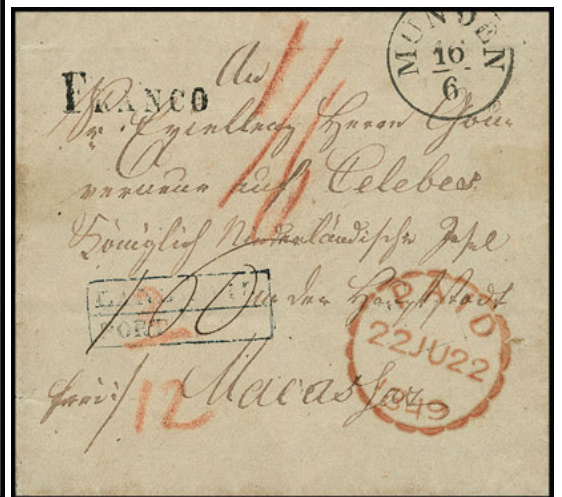 MÜNDEN
16
6
FRANCO
An
Sr. Excellenz Herrn Gou-
verneur auf Celebes
Königlich Niederländische Insel
in der Hauptstadt
PORT
PAID
22JU22
1849
frei
Macassar
12